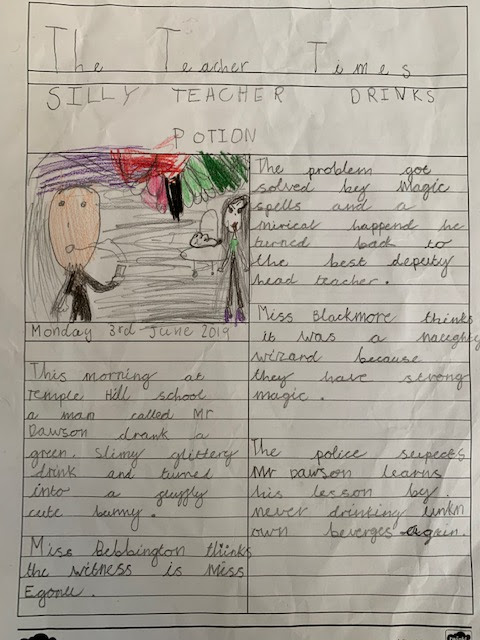 The Teacher Times
SILLY TEACHER DRINKS
POTION
Monday 3rd-June 2019
This morning at
Temple Hill school
a man called Mr
Dawson drank a
green, slimy glittery
drink and turned
into a fluffy
cute bunny.
Miss Bebbington thinks
the witness is Miss
The problem got
solved by magic
spells and a
mirical happend he
turned back to
the best deputy
head teacher.
Miss Blackmore thinks
it was a naughty
wizard because
they have strong
magic.
The police suspects
Mr Dawson learns
his lesson by
never drinking unkn
own beverges again.